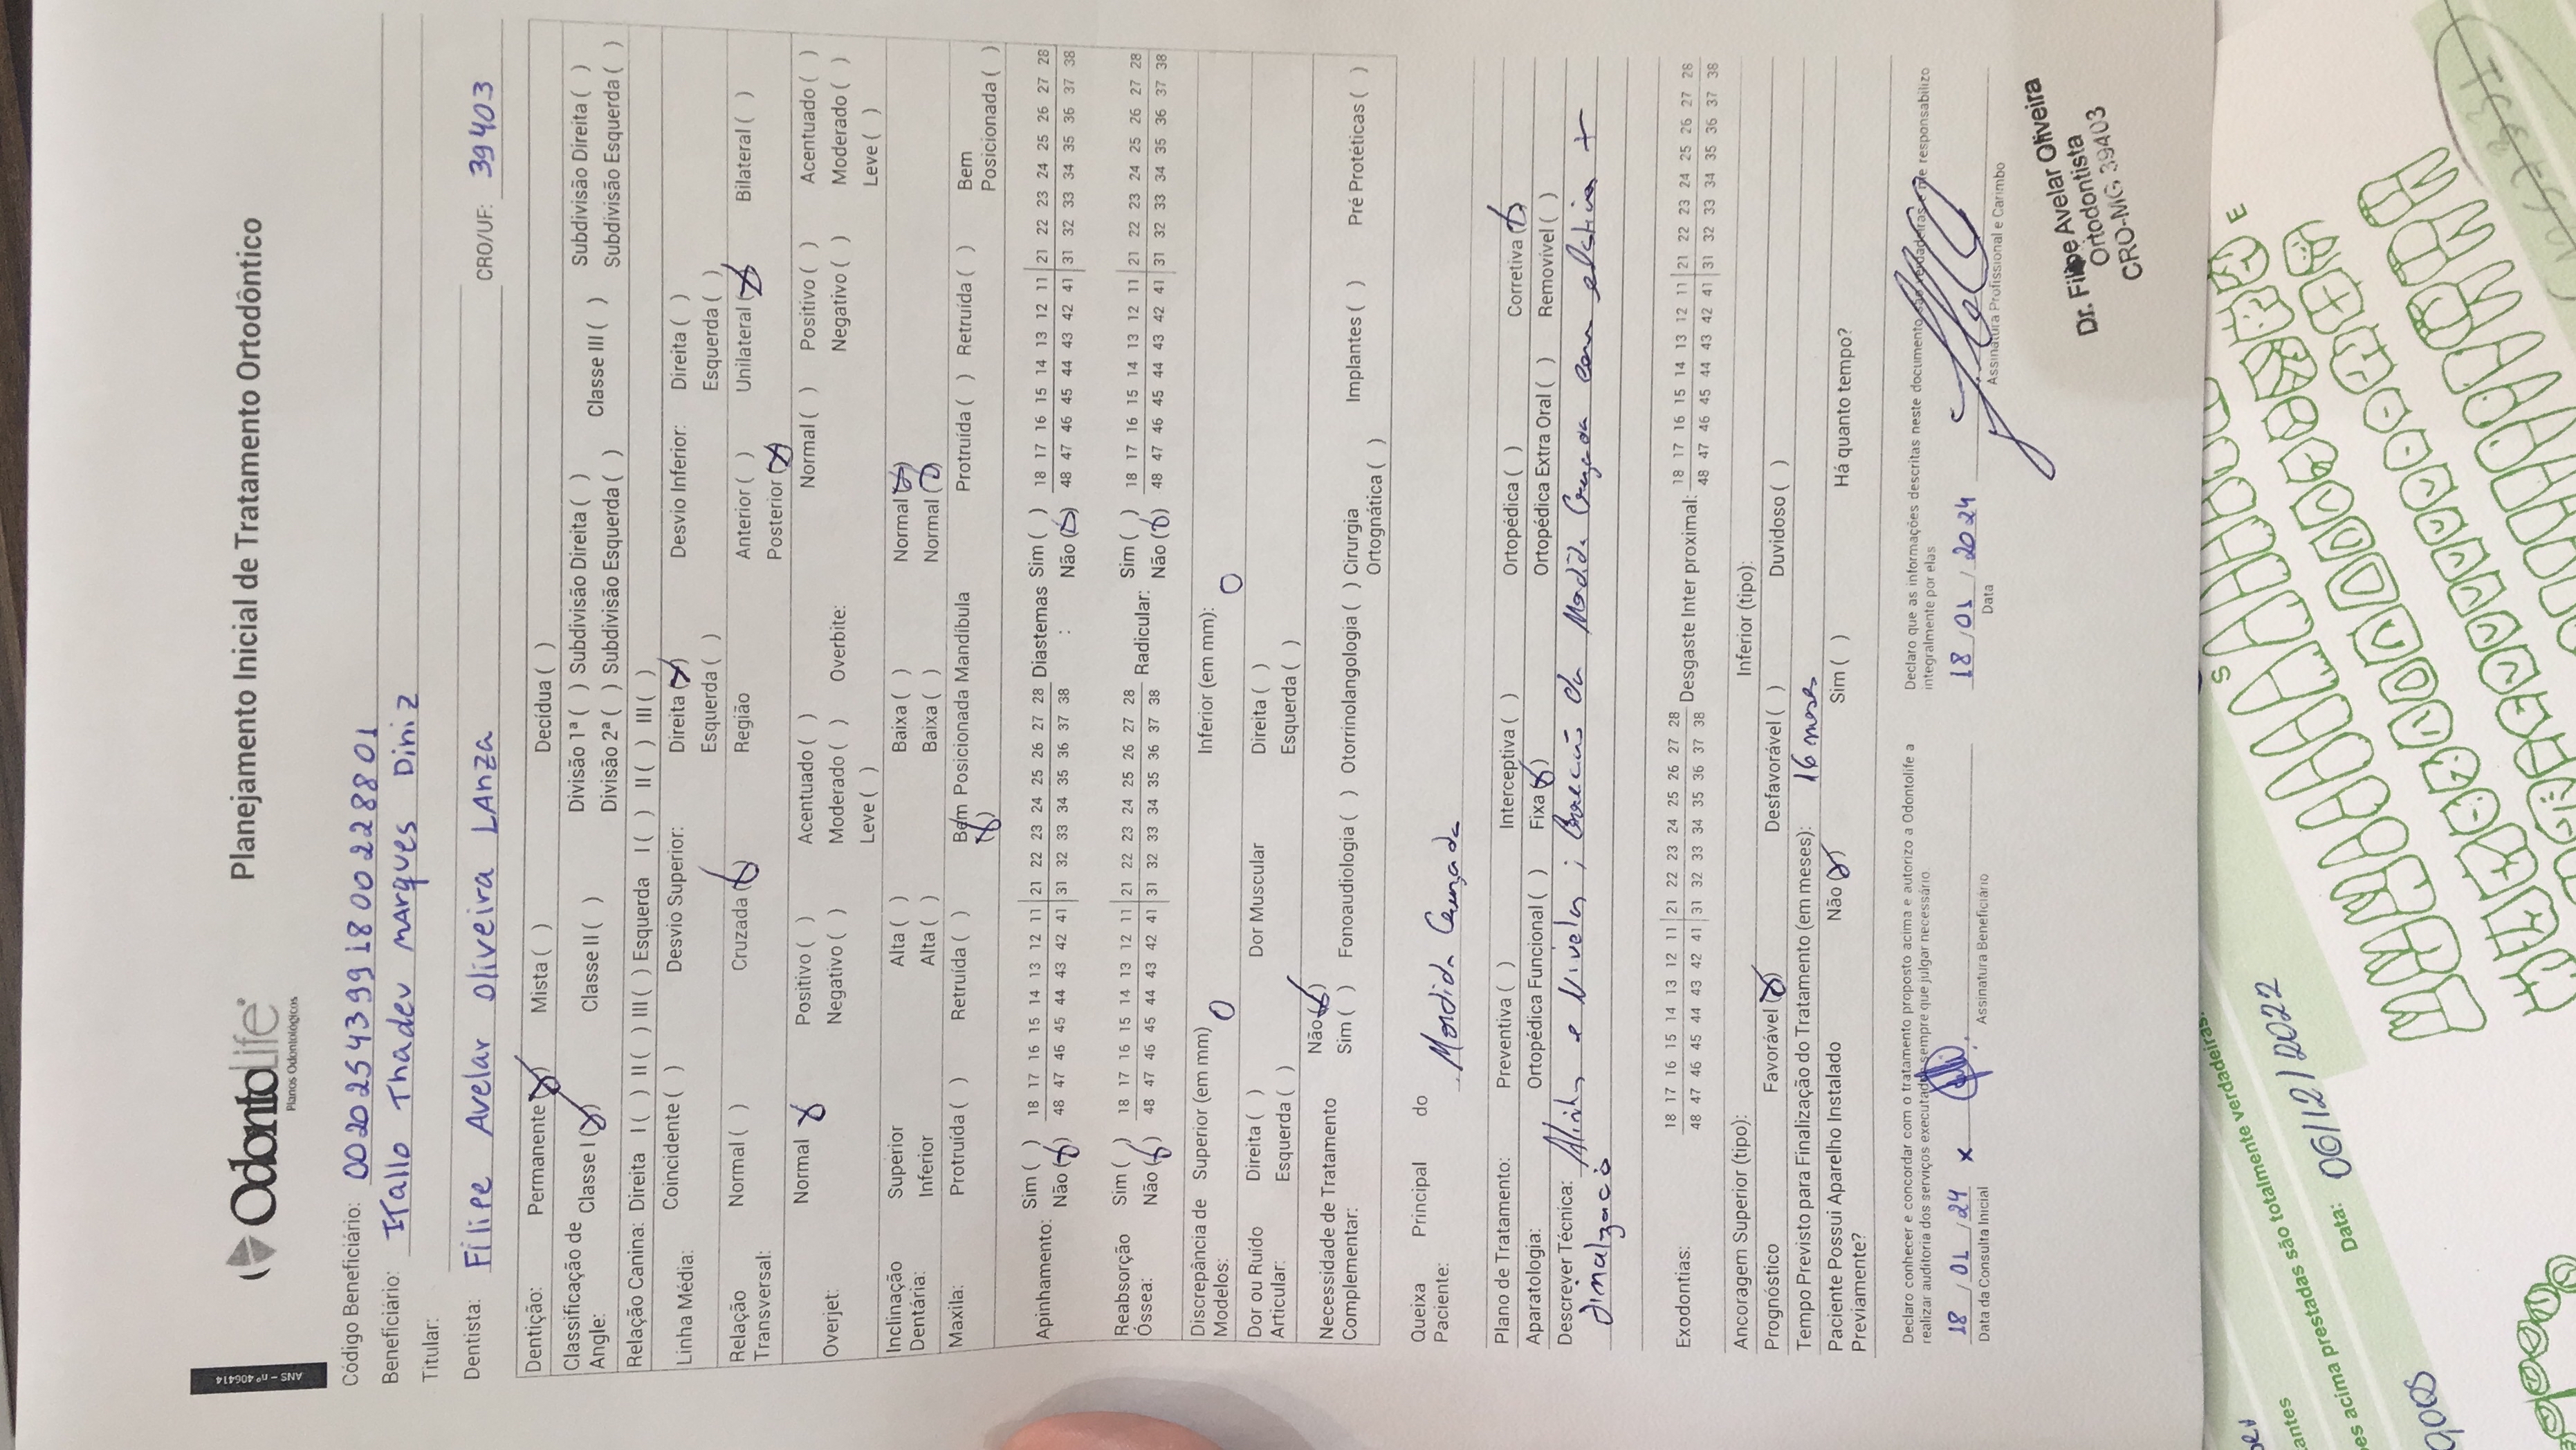 ANS - nº 406414
OdontoLife
Planos Odontológicos
Planejamento Inicial de Tratamento Ortodôntico
Código Beneficiário: 00202543991800228801
Beneficiário: ITallo Thadeu marques Diniz
Titular:
Dentista: Filipe Avelar Oliveira LAnza CRO/UF: 39403
Dentição: Permanente (X) Mista ( ) Decídua ( )
Classificação de Angle: Classe I (X) Classe II ( ) Divisão 1ª ( ) Subdivisão Direita ( ) Classe III ( ) Subdivisão Direita ( )
Divisão 2ª ( ) Subdivisão Esquerda ( ) Subdivisão Esquerda ( )
Relação Canina: Direita I ( ) II ( ) III ( ) Esquerda I ( ) II ( ) III ( )
Linha Média: Coincidente ( ) Desvio Superior: Direita (X) Desvio Inferior: Direita ( )
Esquerda ( ) Esquerda ( )
Relação Transversal: Normal ( ) Cruzada (X) Região Anterior ( ) Unilateral (X) Bilateral ( )
Posterior (X)
Overjet: Normal X Positivo ( ) Acentuado ( ) Overbite: Normal ( ) Positivo ( ) Acentuado ( )
Negativo ( ) Moderado ( ) Negativo ( ) Moderado ( )
Leve ( ) Leve ( )
Inclinação Dentária: Superior Alta ( ) Baixa ( ) Normal (X)
Inferior Alta ( ) Baixa ( ) Normal (X)
Maxila: Protruída ( ) Retruída ( ) Bem Posicionada (X) Mandíbula Protruída ( ) Retruída ( ) Bem Posicionada ( )
Apinhamento: Sim ( ) 18 17 16 15 14 13 12 11 | 21 22 23 24 25 26 27 28 Diastemas : Sim ( ) 18 17 16 15 14 13 12 11 | 21 22 23 24 25 26 27 28
Não (X) 48 47 46 45 44 43 42 41 | 31 32 33 34 35 36 37 38 Não (X) 48 47 46 45 44 43 42 41 | 31 32 33 34 35 36 37 38
Reabsorção Óssea: Sim ( ) 18 17 16 15 14 13 12 11 | 21 22 23 24 25 26 27 28 Radicular: Sim ( ) 18 17 16 15 14 13 12 11 | 21 22 23 24 25 26 27 28
Não (X) 48 47 46 45 44 43 42 41 | 31 32 33 34 35 36 37 38 Não (X) 48 47 46 45 44 43 42 41 | 31 32 33 34 35 36 37 38
Discrepância de Modelos: Superior (em mm) 0 Inferior (em mm): 0
Dor ou Ruído Articular: Direita ( ) Dor Muscular Direita ( )
Esquerda ( ) Esquerda ( )
Necessidade de Tratamento Complementar: Não (X)
Sim ( ) Fonoaudiologia ( ) Otorrinolangologia ( ) Cirurgia Ortognática ( ) Implantes ( ) Pré Protéticas ( )
Queixa Principal do Paciente: Mordida Cruzada
Plano de Tratamento: Preventiva ( ) Interceptiva ( ) Ortopédica ( ) Corretiva (X)
Aparatologia: Ortopédica Funcional ( ) Fixa (X) Ortopédica Extra Oral ( ) Removível ( )
Descrever Técnica: Alinhar e Nivelar ; Correção da Mordida Cruzada com elástico +
finalização
Exodontias: 18 17 16 15 14 13 12 11 | 21 22 23 24 25 26 27 28 Desgaste Inter proximal: 18 17 16 15 14 13 12 11 | 21 22 23 24 25 26 27 28
48 47 46 45 44 43 42 41 | 31 32 33 34 35 36 37 38 48 47 46 45 44 43 42 41 | 31 32 33 34 35 36 37 38
Ancoragem Superior (tipo): Inferior (tipo):
Prognóstico Favorável (X) Desfavorável ( ) Duvidoso ( )
Tempo Previsto para Finalização do Tratamento (em meses): 16 meses
Paciente Possui Aparelho Instalado Previamente? Não (X) Sim ( ) Há quanto tempo?
Declaro conhecer e concordar com o tratamento proposto acima e autorizo a Odontolife a
realizar auditoria dos serviços executados sempre que julgar necessário
Declaro que as informações descritas neste documento são verdadeiras e me responsabilizo
integralmente por elas
18 / 01 / 24 x
Data da Consulta Inicial Assinatura Beneficiário
18 / 01 / 2024
Data Assinatura Profissional e Carimbo
Dr. Filipe Avelar Oliveira
Ortodontista
CRO-MG 39403
es acima prestadas são totalmente verdadeiras.
Data: 06/12/2022
antes